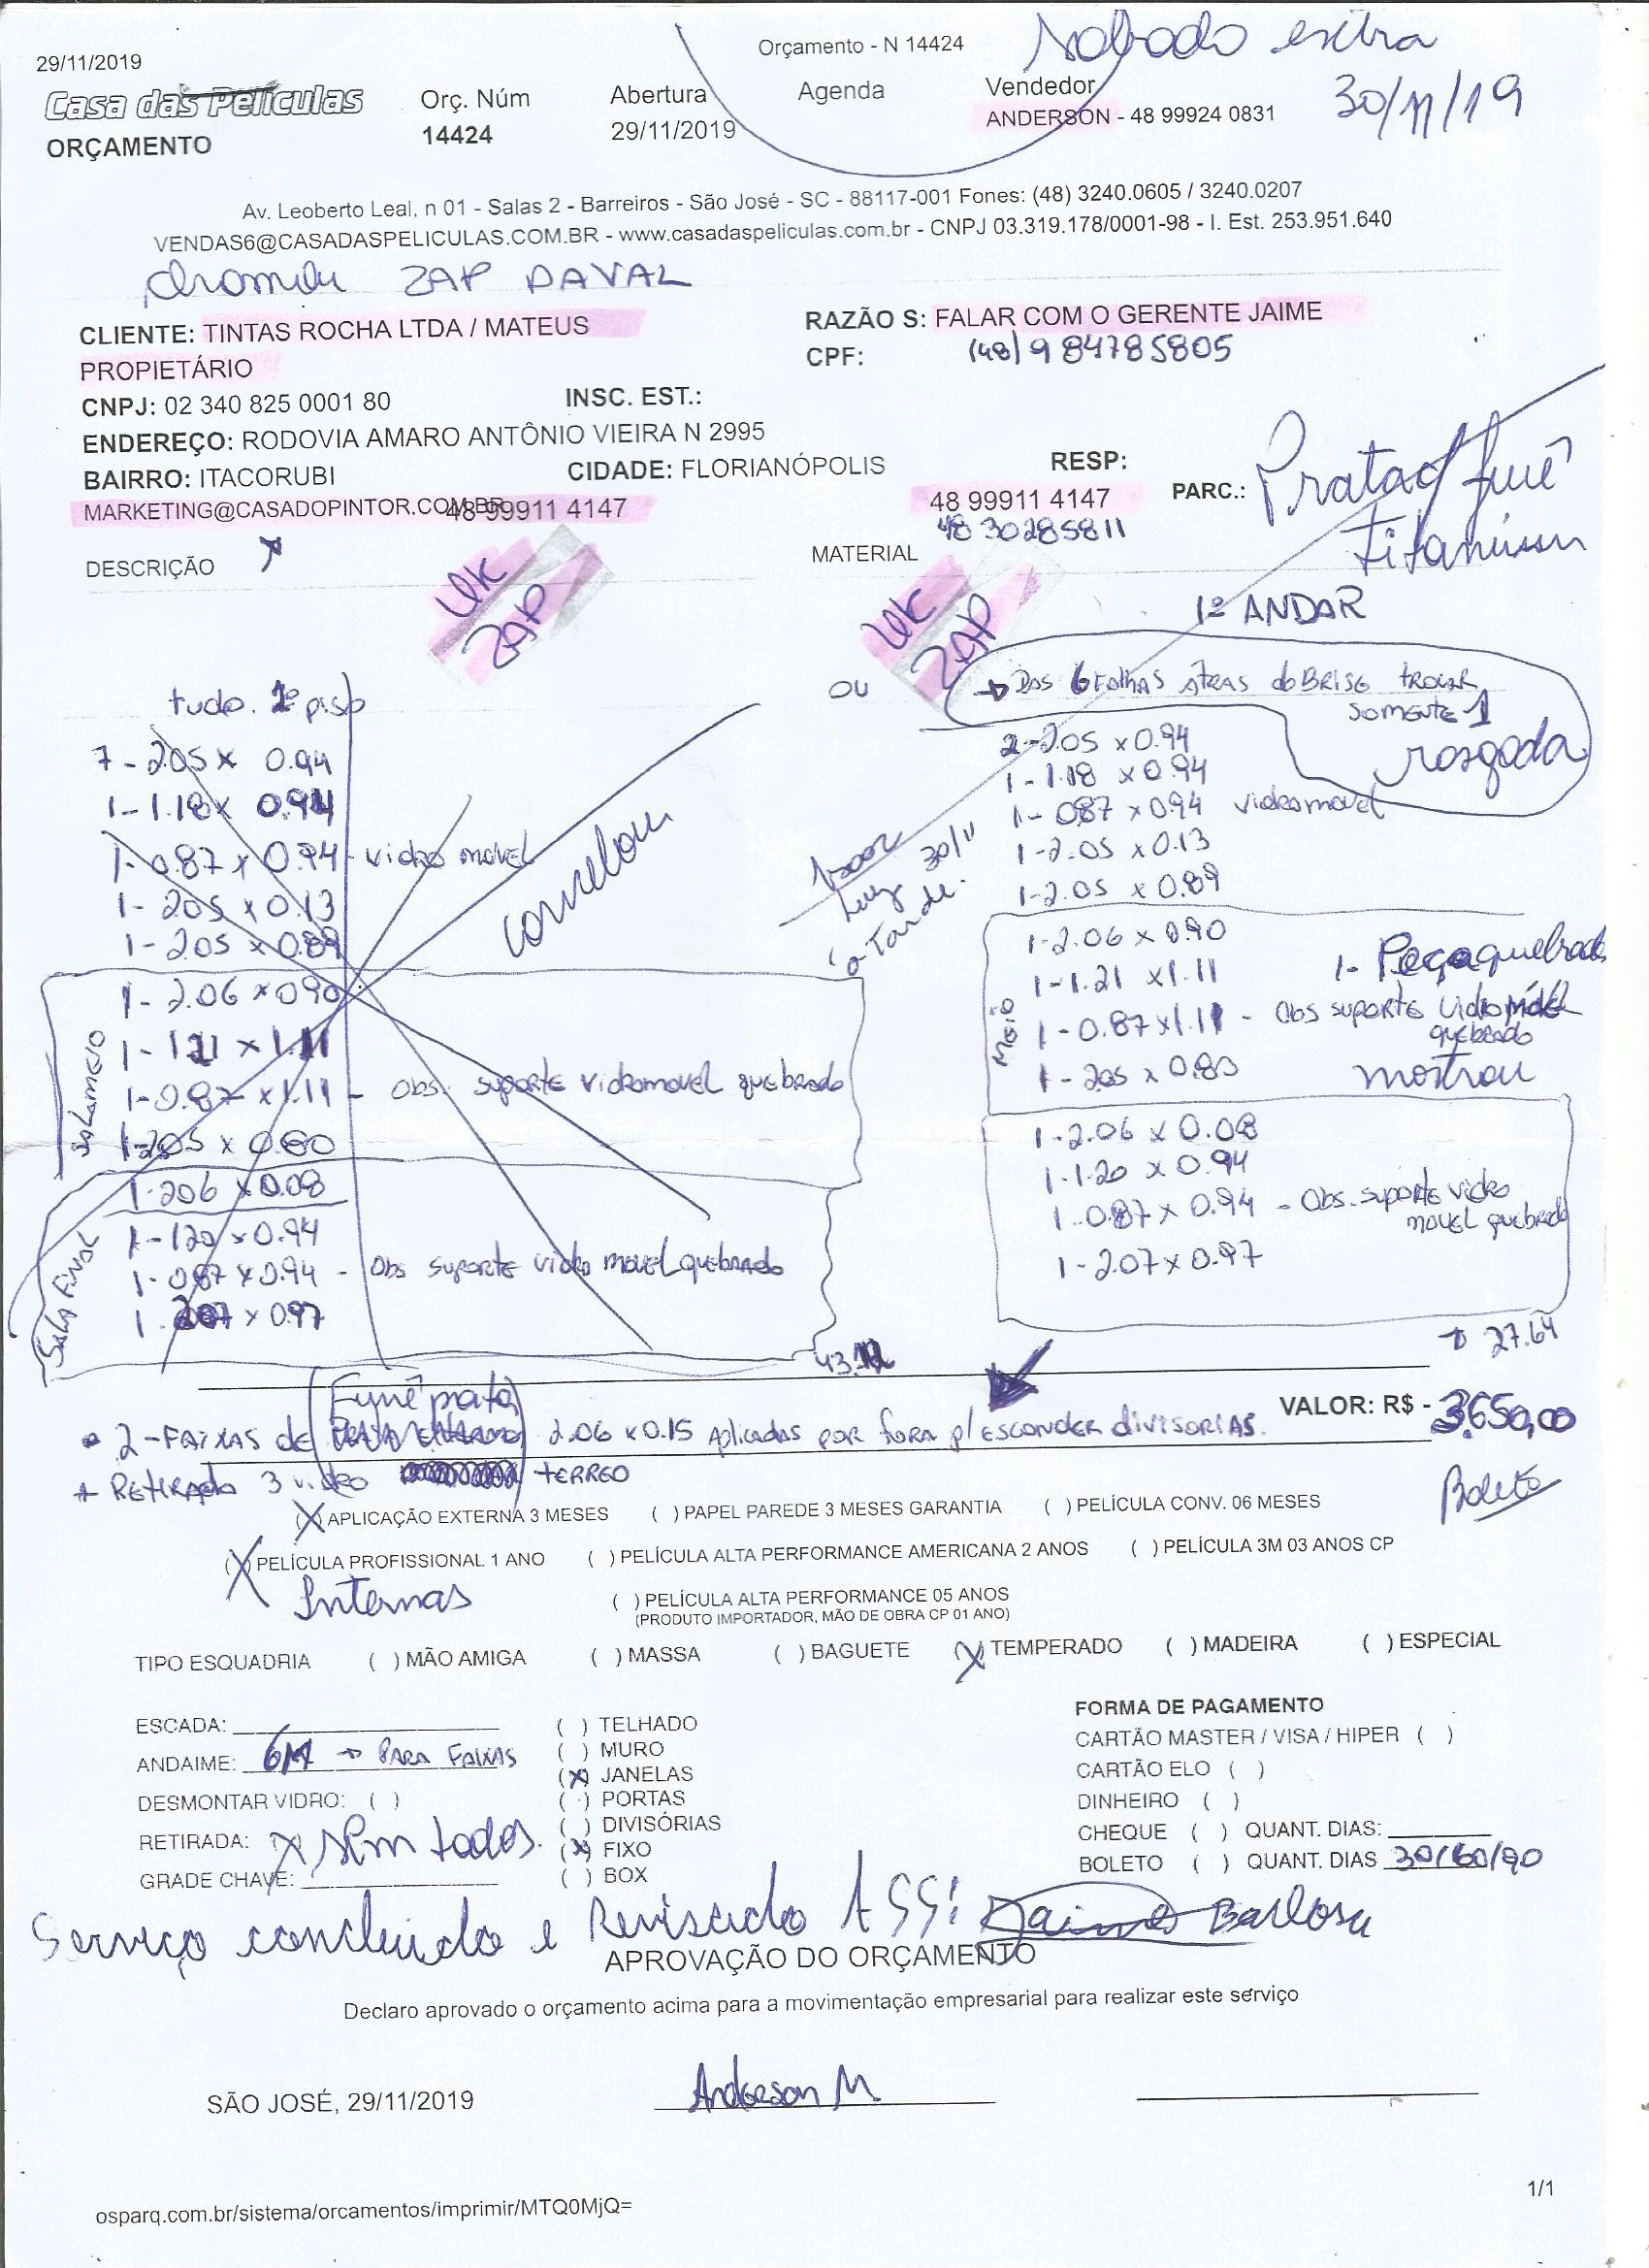 29/11/2019
Orçamento - N 14424
Sabado extra
30/11/19
Casa das Películas
ORÇAMENTO
Orç. Núm
14424
Abertura
29/11/2019
Agenda
Vendedor
ANDERSON - 48 99924 0831
Av. Leoberto Leal, n 01 - Salas 2 - Barreiros - São José - SC - 88117-001 Fones: (48) 3240.0605 / 3240.0207
VENDAS6@CASADASPELICULAS.COM.BR - www.casadaspeliculas.com.br - CNPJ 03.319.178/0001-98 - I. Est. 253.951.640
ZAP DAVAL
CLIENTE: TINTAS ROCHA LTDA / MATEUS
PROPIETÁRIO
RAZÃO S: FALAR COM O GERENTE JAIME
CPF: (48) 984785805
CNPJ: 02 340 825 0001 80 INSC. EST.:
ENDEREÇO: RODOVIA AMARO ANTÔNIO VIEIRA N 2995
BAIRRO: ITACORUBI CIDADE: FLORIANÓPOLIS RESP:
MARKETING@CASADOPINTOR.COM.BR 48 99911 4147 48 99911 4147 PARC.:
48 30285811
Pratao fumê
Titanium
DESCRIÇÃO
MATERIAL
ZAP
ZAP
1º ANDAR
OU
→ Das 6 folhas atras do Brise trocar
somente 1
rasgada
tudo. 1º piso
7 - 2.05 x 0.94
1 - 1.18 x 0.94
1 - 0.87 x 0.94 - vidro movel
1 - 2.05 x 0.13
1 - 2.05 x 0.89
cancelou
Sala meio
1 - 2.06 x 0.90
1 - 1.21 x 1.11
1 - 0.87 x 1.11 - Obs. suporte vidro movel quebrado
1 - 2.05 x 0.80
Sala Final
1 - 2.06 x 0.08
1 - 1.20 x 0.94
1 - 0.87 x 0.94 - Obs suporte vidro movel quebrado
1 - 2.07 x 0.97
43.12
2 - 2.05 x 0.94
1 - 1.18 x 0.94
1 - 0.87 x 0.94 vidro movel
1 - 2.05 x 0.13
1 - 2.05 x 0.89
30/11
a Tarde.
Meio
1 - 2.06 x 0.90
1 - 1.21 x 1.11
1 - 0.87 x 1.11 - Obs suporte vidro móvel
quebrado
1 - Peça quebrada
1 - 2.05 x 0.80
mostrou
1 - 2.06 x 0.08
1 - 1.20 x 0.94
1 - 0.87 x 0.94 - Obs. suporte vidro
movel quebrado
1 - 2.07 x 0.97
→ 27.64
VALOR: R$ - 3.650,00
Boleto
Fumê prata
• 2 - Faixas de 2.06 x 0.15 Aplicadas por fora p/ esconder divisorias.
+ Retirada 3 vidro terreo
(X) APLICAÇÃO EXTERNA 3 MESES ( ) PAPEL PAREDE 3 MESES GARANTIA ( ) PELÍCULA CONV. 06 MESES
(X) PELÍCULA PROFISSIONAL 1 ANO ( ) PELÍCULA ALTA PERFORMANCE AMERICANA 2 ANOS ( ) PELÍCULA 3M 03 ANOS CP
Internas
( ) PELÍCULA ALTA PERFORMANCE 05 ANOS
(PRODUTO IMPORTADOR, MÃO DE OBRA CP 01 ANO)
TIPO ESQUADRIA ( ) MÃO AMIGA ( ) MASSA ( ) BAGUETE (X) TEMPERADO ( ) MADEIRA ( ) ESPECIAL
ESCADA:
ANDAIME: 6M → Para Faixas
DESMONTAR VIDRO: ( )
RETIRADA: X Sem todos.
GRADE CHAVE:
( ) TELHADO
( ) MURO
(X) JANELAS
( ) PORTAS
( ) DIVISÓRIAS
(X) FIXO
( ) BOX
FORMA DE PAGAMENTO
CARTÃO MASTER / VISA / HIPER ( )
CARTÃO ELO ( )
DINHEIRO ( )
CHEQUE ( ) QUANT. DIAS:
BOLETO ( ) QUANT. DIAS 30/60/90
Serviço concluido e Revisado ASS: Jaime Barbosa
APROVAÇÃO DO ORÇAMENTO
Declaro aprovado o orçamento acima para a movimentação empresarial para realizar este serviço
SÃO JOSÉ, 29/11/2019
Anderson M.
1/1
osparq.com.br/sistema/orcamentos/imprimir/MTQ0MjQ=